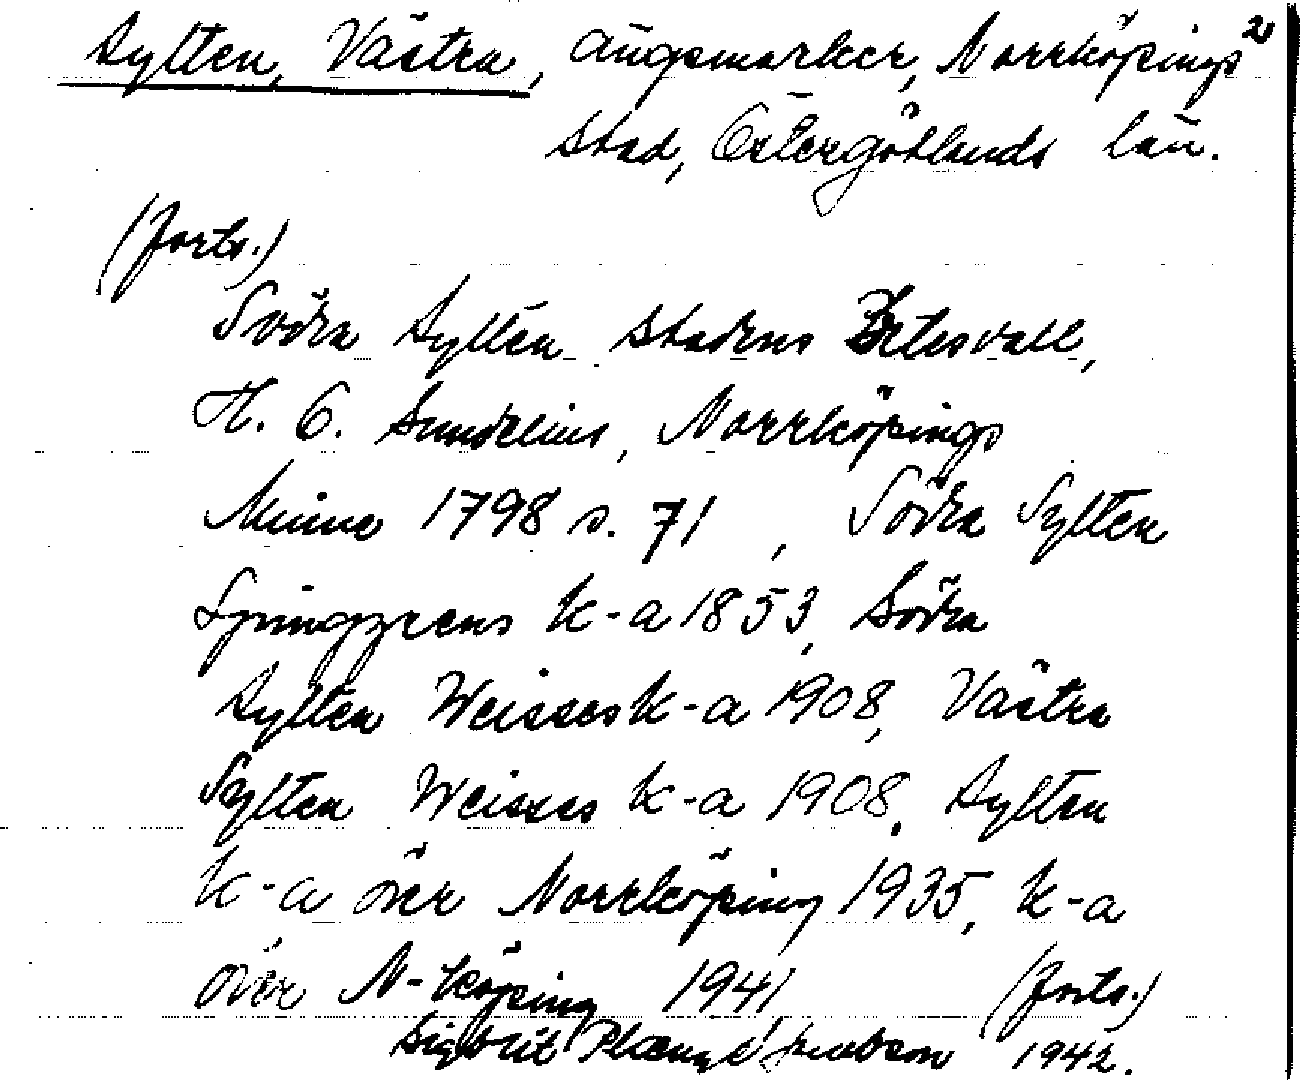 Sylten, Västra, ängsmarker, Norrköpings 2
stad, Östergötlands län.
(forts.)
Södra Sylten Stadens Betesvall,
H. O. Sundelius, Norrköpings
Minne 1798 s. 71, Södra Sylten
Ljunggrens k-a 1853, Södra
Sylten Weisses k-a 1908, Västra
Sylten Weisses k-a 1908, Sylten
k-a över Norrköping 1935, k-a
över N-köping 1941 (forts.)
Sigbrit Plænge Jacobson 1942.